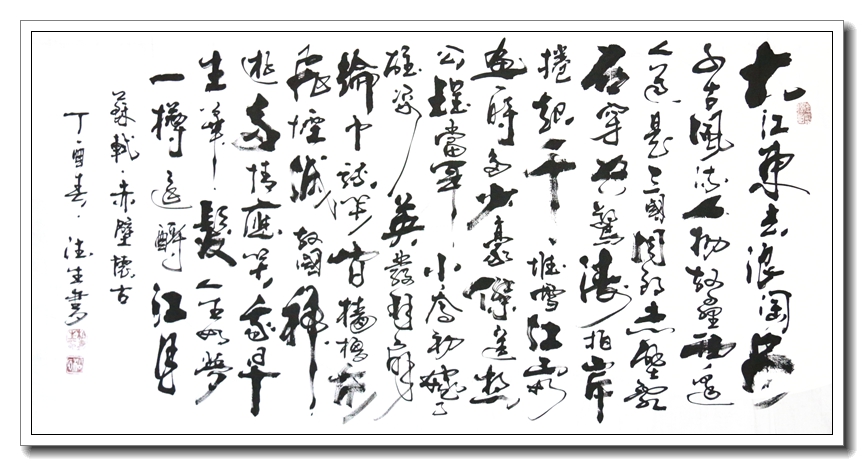 大江東去浪淘盡
千古風流人物故壘西邊
人道是三國周郎赤壁亂
石穿空驚濤拍岸
捲起千堆雪江山如
畫一時多少豪傑遙想
公瑾當年小喬初嫁了
雄姿英發羽扇
綸巾談笑間檣櫓灰
飛煙滅故國神
遊多情應笑我早
生華髮人生如夢
一樽還酹江月
蘇軾·赤壁懷古
丁酉春·德生書